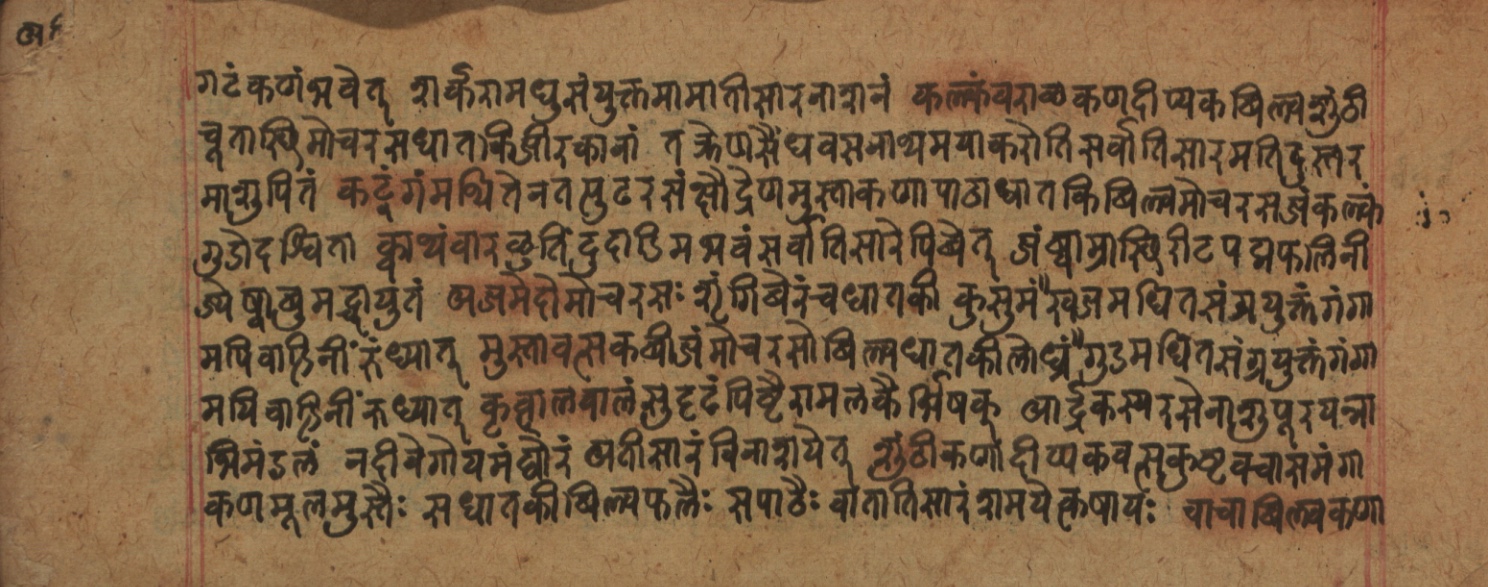 गटं कणं भवेत् शर्करामधुसंयुक्तमामातीसारनाशनं कल्कंवरालकणदीप्यकबिल्वशुंठी
चूतास्थिमोचरसधातकिजीरकानां तक्रेणसैंधवसनाथमयाकरोति सर्वातिसारमतिदुस्तर
माशुपितं कट्वंगंमथितेनतत्पुटरसंक्षौद्रेणमुस्ताकणापाठाधातकिबिल्वमोचरसजंकल्कं
गुडोदश्विता क्वाथंवारळुतिंदुदाडिमभवंसर्वातिसारेपिबेत् जंब्वाम्रास्थिरीटपद्मफलिनी
अजमेदोमोचरसः शृंगिबेरंचधातकी कुसुमं मथितसंप्रयुक्तंगंगा
मपिवाहिनीं रुंध्यात् मुस्तावत्सकबीजंमोचरसोबिल्वधातकीलोध्रं गुडमथितसंप्रयुक्तंगंगा
मपिवाहिनीं रुध्यात् कृत्वालवालंसुदृढंपिष्टैरामलकैर्भिषक् आर्द्रकस्वरसेनाशुपूरयेन्ना
भिमंडलं नदीवेगोपमंघोरं अतीसारंविनाशयेत् शुंठीकणादीप्यकवत्सकुष्ठवचासमंगा
कणमूलमुस्तैः सधातकीबिल्वफलैः सपाठैः वातातिसारंशमयेत्कषायः वाचाबिल्वकणा